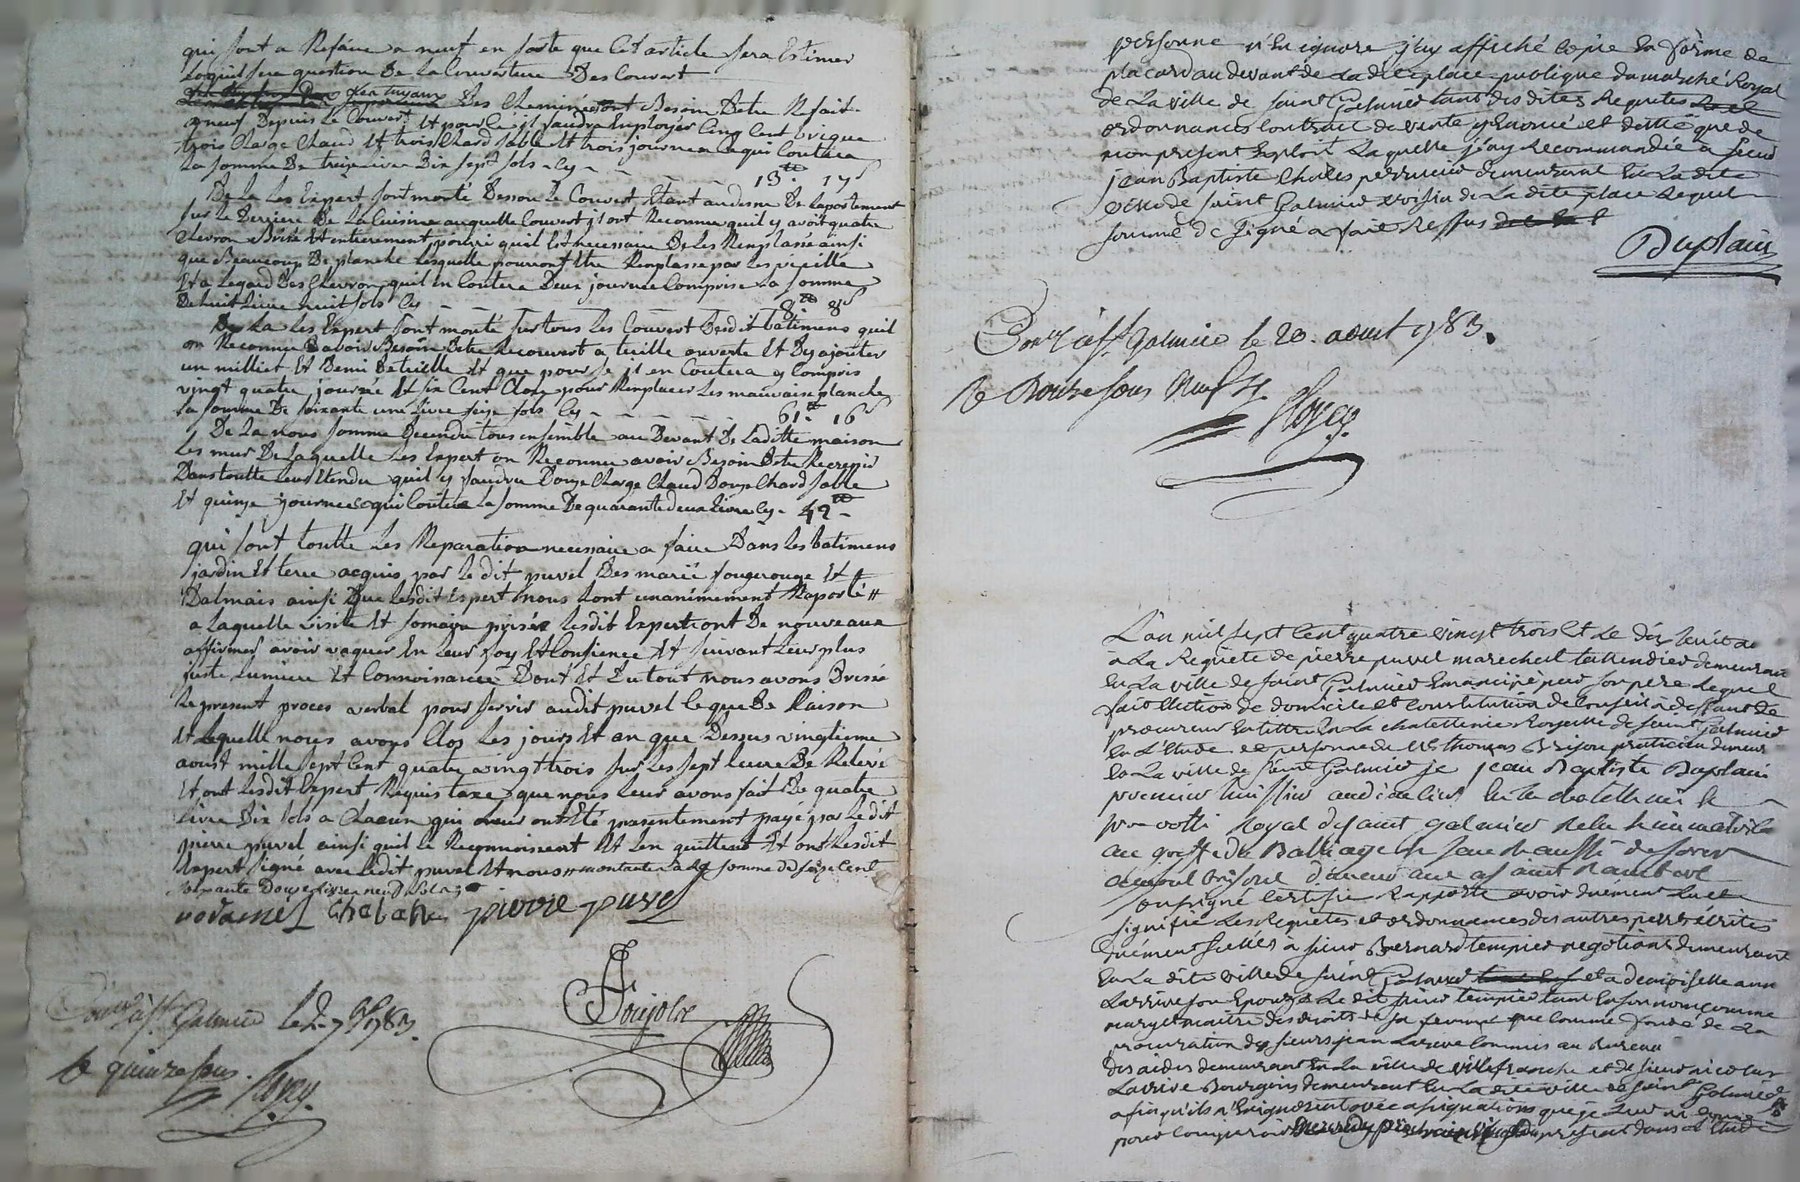 qui sont a Refaire a neuf en sorte que Cet article sera Estimer
Loquil sera question De la Couverture Des Couvert
Des Cheminée ont Besoin Detre Refait
a neuf Depuis Le Couvert Et pour Ce il faudra Employer Cinq Cent brique
trois Charge Chaud Et trois Chard sable Et trois journée Ce qui Coutera
La somme De treize livre Dix sept sols Cy - - - - 13# 17s
De La Les Expert sont monté Dessou Le Couvert Etant au dessue De lapartement
sur le Derriere De la Cuisine auquelle Couvert ils ont Reconnue quil y avoit quatre
Chevron Brisé Et entierement pourri quil Est necessaire De Les Remplassé ainsi
que Beaucoup De planche lesquelle pourront Etre Remplassé par les vieille
Et a Legard Des Chevron quil en Coutera Deux journée Comprise La somme
De huit Livre huit sols Cy - - - - 8# 8s
De La Les Expert sont monté sur tous Les Couvert Dudit batimens quil
on Reconnu avoir Besoin Detre Recouvert a tuille ouverte Et Dy ajouter
un millier Et Demi De tuille Et que pour se il en Coutera y Compris
vingt quatre journée Et six Cent Cloux pour Remplacer Les mauvaise planche
La somme De soixante une Livre seize sols Cy - - - - 61# 16s
De La nous somme Decendu tous ensemble au Devant De Laditte maison
Les mur De Laquelle Les Expert on Reconnu avoir Besoin Detre Recrepir
Dans toutte leur Etendu quil y faudra Douze Charge Chaud Douze Chard sable
Et quinze journée Ce qui Coutera La somme De quarante deux Livre Cy - 42#
qui sont toutte Les Reparation necessaire a faire Dans Les batimens
jardin Et terre acquis par le dit puvel Des marié fougerouge Et
Dalmais ainsi Que lesdit Expert nous Lont unanimement Raporté #
a Laquelle visite Et prisée lesdit Expert ont De nouveaux
affirmer avoir vaquer En Leur foy Et Consience Et suivant Leur plus
juste Lumiere Et Connoissance Dont Et Du tout nous avons Dressé
Le present proces verbal pour servir audit puvel Ce que De Raison
Et Lequelle nous avons Clos Les jours Et an que Dessus vingtieme
aoust mille sept Cent quatre vingt trois sur Les sept heure De Relevé
Et ont lesdit Expert Requis taxe que nous Leur avons fait De quatre
Livre Dix sols a Chacun qui Leur ont Eté presentement payé par Le dit
pierre puvel ainsi quil le Reconnoissent Et Len quittent Et ont lesdit
Expert signé avec ledit puvel Et nous # montante a La somme de seize Cent
soixante Douze livre neuf sols
pierre puvel
Galmier 1783
R quinze sous
personne n'En ignore j'ay affiché Copie En forme de
placard au devant de La dite place publique du marché Royal
de La ville de saint Galmier tant des dites Requetes
ordonnances Contrat de vente Enoncé et datté que de
mon present Exploit Laquelle j'ay Recommandée a sieur
jean Baptiste Charles perrucier demeurant En La dite
ville de saint Galmier voisin de La dite place Lequel
sommé de signé a fait Reffus
Duplain
Con.lé à St Galmier le 20. aout 1783.
R Douze sous
L'an mil sept Cent quatre vingt trois Et Le dix huit
à La Requete de pierre puvel marechal taillandier demeurant
En La ville de saint Galmier Emancipé par son pere Lequel
fait Election de domicile et Constitution de Conseil à deffaut de
procureur En titre En La chatellenie Royalle de saint Galmier
En L'Etude et personne de Me thomas Brijon praticien demeur
En La ville de saint Galmier je jean Baptiste Duplain
premier huissier audiancier En la chatellenie
prevotté Royal de saint Galmier
au greffe du Balliage
soussigné Certifie Rapporte avoir duement Lu et
signifié Les Requetes et ordonnances des autres parts Ecrites
duement scellés à sieur Bernard tempier negotiant demeurant
En La dite ville de saint Galmier et a demoiselle anne
Larrive son Epouze Le dit sieur tempier tant En son nom comme
mary et maitre des droits de sa femme que Comme fondé de La
procuration des sieurs jean Larive Commis au Bureau
des aides demeurant En La ville de villefranche et de sieur nicolas
Larrive Bourgeois demeurant En La dite ville de saint Galmier
afin qu'ils n'En ignorent avec assignations que je Leur ai donné
pour Comparoir present dans L'Etude